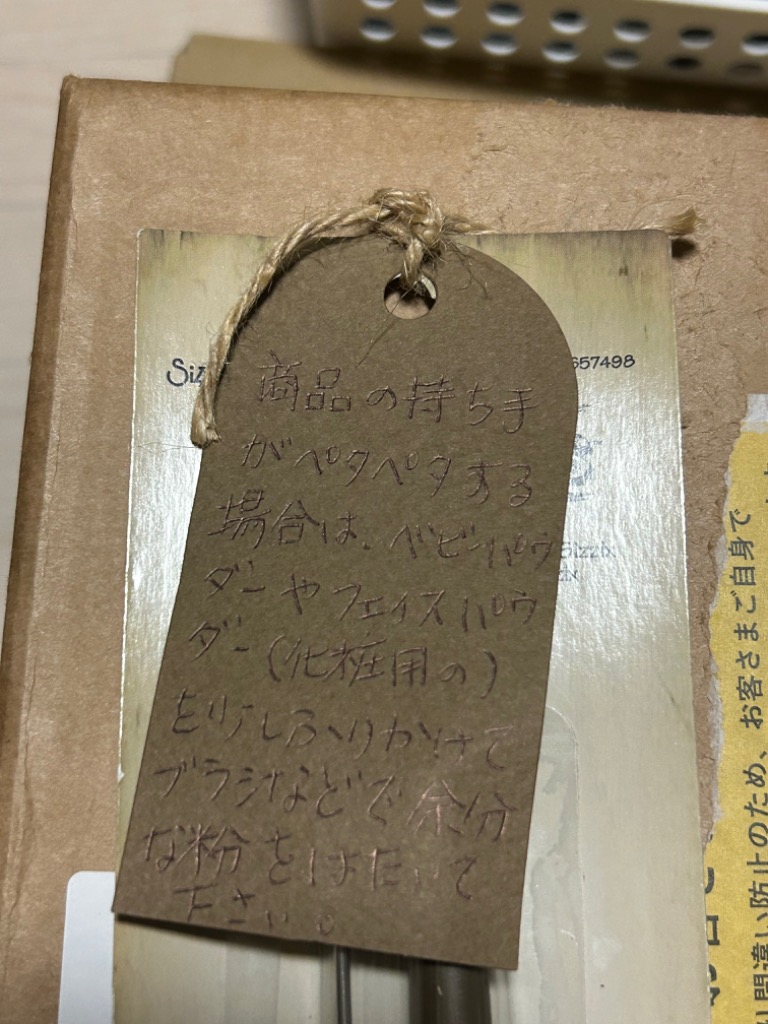 657498
商品の持ち手
がペタペタする
場合は、ベビーパウ
ダーやフェイスパウ
ダー(化粧用の)
を少しふりかけて
ブラシなどで余分
な粉をはたいて
下さい。
Sizzix
間違い防止のため、お客さまご自身で